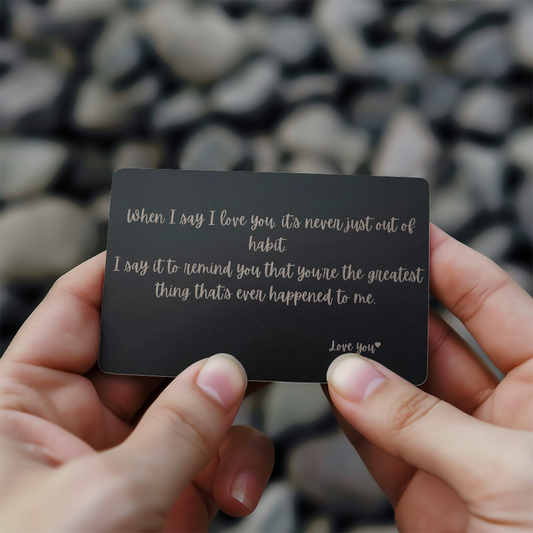 When I say I love you, it's never just out of
habit.
I say it to remind you that you're the greatest
thing that's ever happened to me.
Love You♥